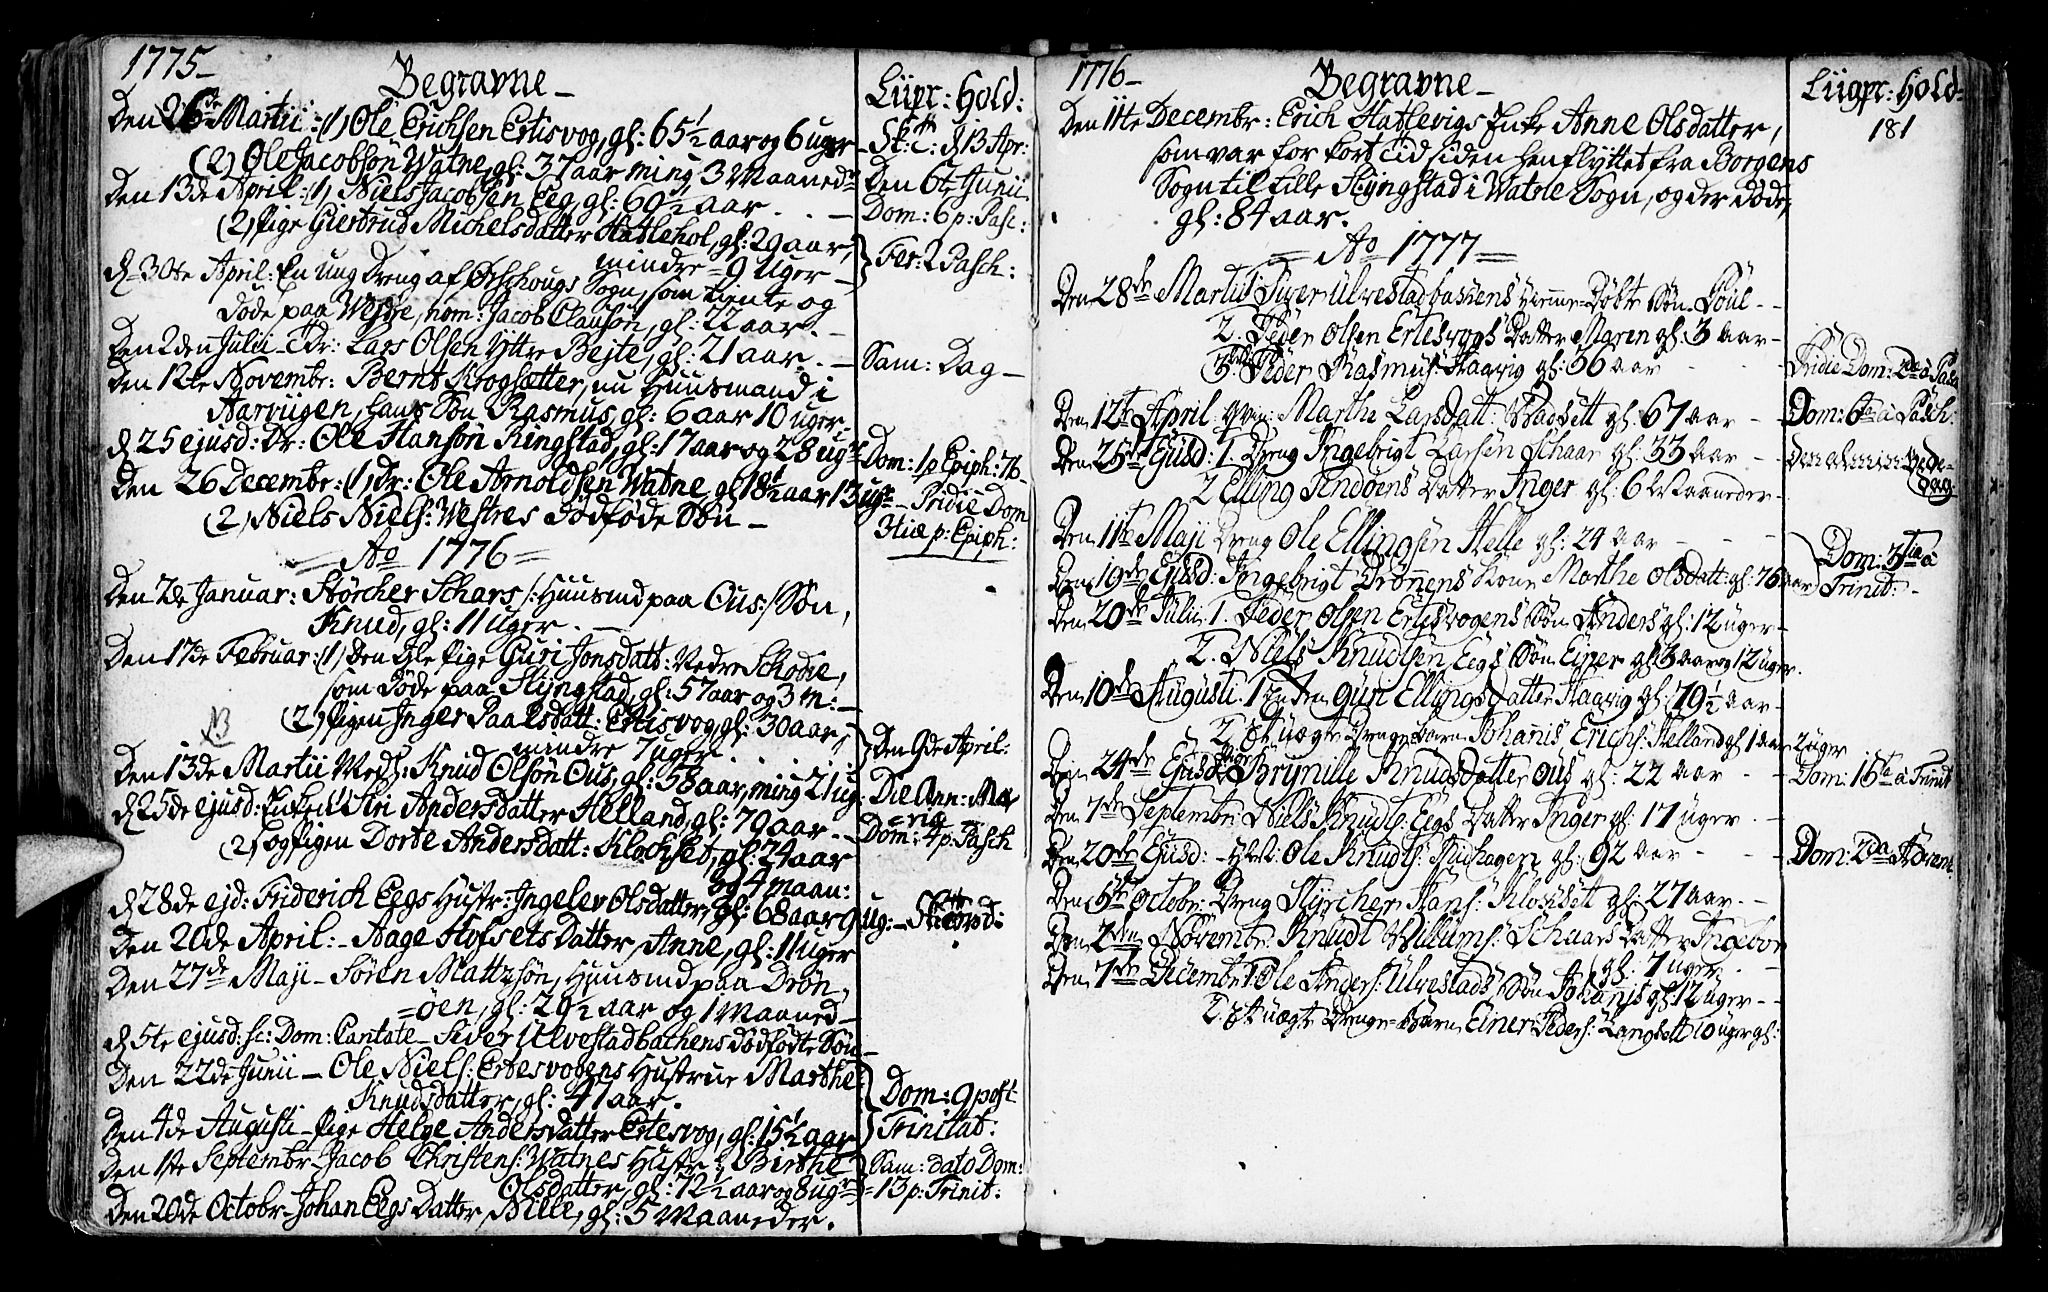 1775_
Begravne_
Liipr: Hold:
Den 26de Martii: (1) Ole Erichsen Ertisvog, gl: 65½ aar og 6 uger
Sk: C: d 13 Apr:
(2) Ole Jacobsøn Watne, gl: 37 aar ming 3 Maaneder
Den 6te Junii
Den 13de April: (1) Niels Jacobsen Eeg, gl: 60½ aar.
Dom: 6 p: Pasc:
(2) Pige Giertrud Michelsdatter Hatlehol, gl: 29 aar,
mindre 9 Uger
Fer: 2 Pasch:
d 30te April: En ung Dreng af Ørschougs Sogn, som tiente og
døde paa Westre, nom: Jacob Clausøn, gl: 22 aar.
Den 2den Julii Dr: Lars Olsen Yttre Bejte, gl: 21 aar.
Sam: Dag_
Den 12te Novembr: Bernt Krogsætter, nu Huusmand i
Aarviigen, hans Søn Rasmus, gl: 6 aar 10 uger.
d 25 ejusd: Dr: Ole Hansøn Ringstad, gl: 17 aar og 28 ugr
Dom: 1 p Epiph: 76
Den 26 Decembr: (1) Dr: Ole Arnoldsen Watne, gl 18½ aar 13 ugr
Pridie Dom
(2) Niels Niels: Westres Dødføde Søn_
3tiæ p: Epiph:
Ao 1776
Den 2de Januar: Størcher Schars /: Huusmd paa Ous :/ Søn,
Knud, gl: 11 uger.
Den 17de Februar: (1) Den gle Pige Guri Jonsdatt: Nedre Schodie,
som døde paa Slyngstad, gl: 57 aar og 3 m:
(2) Pigen Inger Paalsdatt: Ertisvog, gl: 30 aar,
mindre 7 uger
Den 9de April:
Den 13de Martii Wedh: Knud Olsøn Ous, gl: 58 aar, ming 21 ug:
Die Ann: Ma
d 25de ejusd: Enken Siri Andersdatter Helland, gl: 79 aar.
=riæ_
(2) og Pigen Dorte Andersdatt: Klochset, gl: 24 aar
Dom: 4 p: Pasch
og 4 maan:
d 28de ejd: Friderich Eegs Hustr: Ingelev Olsdatter, gl: 68 aar 9 ug:
Den 20de April: Aage Hofsets Datter, Anne, gl: 11 uger
Den 27de Maji Søren Mattzsøn, Huusmd paa Drøn,
=nen, gl: 29½ aar og 1 Maaned
d 5te ejusd: sc: Dom: Cantate Siver Ulvestadbachens dødfødte Søn
Den 22de Junii Ole Niels: Ertesvogens Hustrue Marthe
Knudsdatter, gl: 47 aar.
Dom: 9 post
Trinitat:
Den 4de Augusti Pige Helge Andersdatter Ertesvog, gl: 15½ aar
Den 1ste Septembr Jacob Christens: Watnes Hustr: Birthe
Sam: dato Dom:
Olsdatter, gl: 72½ aar og 8 ugr
13 p: Trinit:
Den 20de Octobr Johan Eegs Datter, Bille, gl: 5 Maaneder.
1776_
Begravne_
Liigpr: Hold:
181
Den 11te Decembr: Erich Hatlevigs Enke Anne Olsdatter,
som var for kort tid siden henflyttet fra Borgens
Sogn til Lille Slyngstad i Watne Sogn, og der døde,
gl: 84 aar.
Ao 1777
Den 28de Martii Siver Ulvestadbackens Hiemme-Døbte Søn Poul
2. Peder Olsen Ertesvogs Datter Maren gl: 3 Aar
3. Peder Rasmus: Haavig gl: 36 aar
Pridie Dom: 2da à Pasc
Den 12te April: Marthe Larsdatt: Wadsett gl: 67 aar
Dom: 6ta à Pasch:
Den 25de Ejusd: 1. Dreng Ingebrigt Larsen Schaar gl: 33 Aar
Den almin: Bede-
dag
2 Elling Sindøens Datter Inger gl: 6 Maaneder
Den 11te Maji Dreng Ole Ellingsen Helle gl: 24 aar
Dom: 3tia à
Trinit:
Den 19de Ejusd: Ingebrigt Drønnens Kone Marthe Olsdatt: gl: 76 aar
Den 20de Julii 1. Peder Olsen Ertesvogens Søn Anders gl: 12 uger
2. Niels Knudtsen Eegs Søn Einer gl: 3 aar og 12 uger.
Den 10de Augusti. 1 Enken Guri Ellingsdatter Haavig gl: 79½ Aar
2. Et uægte Drengebarn Johanis Erichs: Helland gl 1 aar 2 uger
Den 24de Ejusd: Brynille Knudsdatter Ous gl: 22 aar
Dom: 15ta à Trinit
Den 7de Septembr: Niels Knudts: Eegs Datter Inger gl: 17 uger
Den 20de Ejusd: Ole Knudts: gl: 92 aar
Dom: 2da Advent
Den 5te Octobr: Dreng Styrcher Hans: Klocksett gl: 27 aar.
Den 2den Novembr: Knudt Willums: Schaars Datter Ingebor
gl: 7 uger.
Den 7de Decembr: 1 Ole Anders: Ulvestads Søn Johanis gl: 12 uger
2. Et uægte Drenge-Barn Einer Peders: Langsett 10 uger gl: